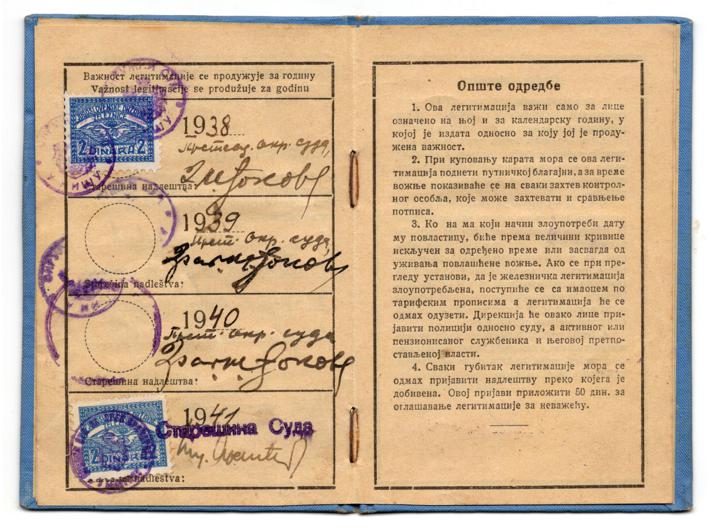 Важност легитимације се продужује за годину
Važnost legitimacije se produžuje za godinu
2 DINARA 2
1938
окр. суда
Старешина надлештва:
1939
окр. суда
nadleštva:
1940
окр. суда
Старешина надлештва:
1941
Старешина Суда
2 DINARA
nadleštva:
Опште одредбе
1. Ова легитимација важи само за лице
означено на њој и за календарску годину, у
којој је издата односно за коју јој је проду-
жена важност.
2. При куповању карата мора се ова леги-
тимација поднети путничкој благајни, а за време
вожње показиваће се на сваки захтев контрол-
ног особља, које може захтевати и сравњење
потписа.
3. Ко на ма који начин злоупотреби дату
му повластицу, биће према величини кривице
искључен за одређено време или засвагда од
уживања повлашћене вожње. Ако се при пре-
гледу установи, да је железничка легитимација
злоупотребљена, поступиће се са имаоцем по
тарифским прописима а легитимација ће се
одмах одузети. Дирекција ће овако лице при-
јавити полицији односно суду, а активног или
пензионисаног службеника и његовој претпо-
стављеној власти.
4. Сваки губитак легитимације мора се
одмах пријавити надлештву преко којега је
добивена. Овој пријави приложити 50 дин. за
оглашавање легитимације за неважећу.